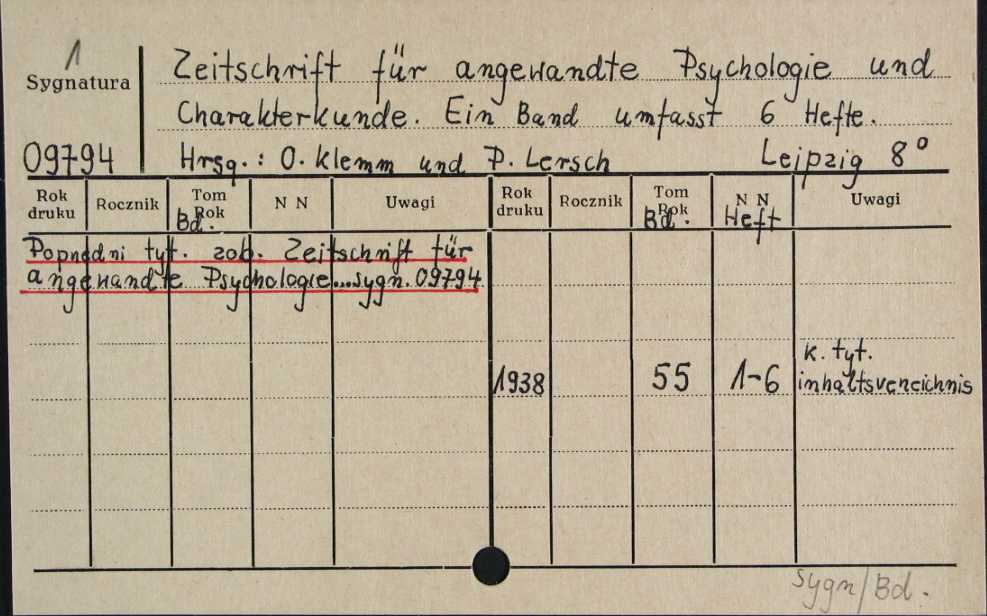 1
Sygnatura
Zeitschrift für angewandte Psychologie und
Charakterkunde. Ein Band umfasst 6 Hefte.
09794 Hrsg.: O. Klemm und P. Lersch Leipzig 8°
Rok druku Rocznik Tom Rok Bd. N N Uwagi Rok druku Rocznik Tom Rok Bd. N N Heft Uwagi
Poprzedni tyt. zob. Zeitschrift für
angewandte Psychologie...sygn. 09794
k. tyt.
1938 55 1-6 inhaltsverzeichnis
sygn/Bd.